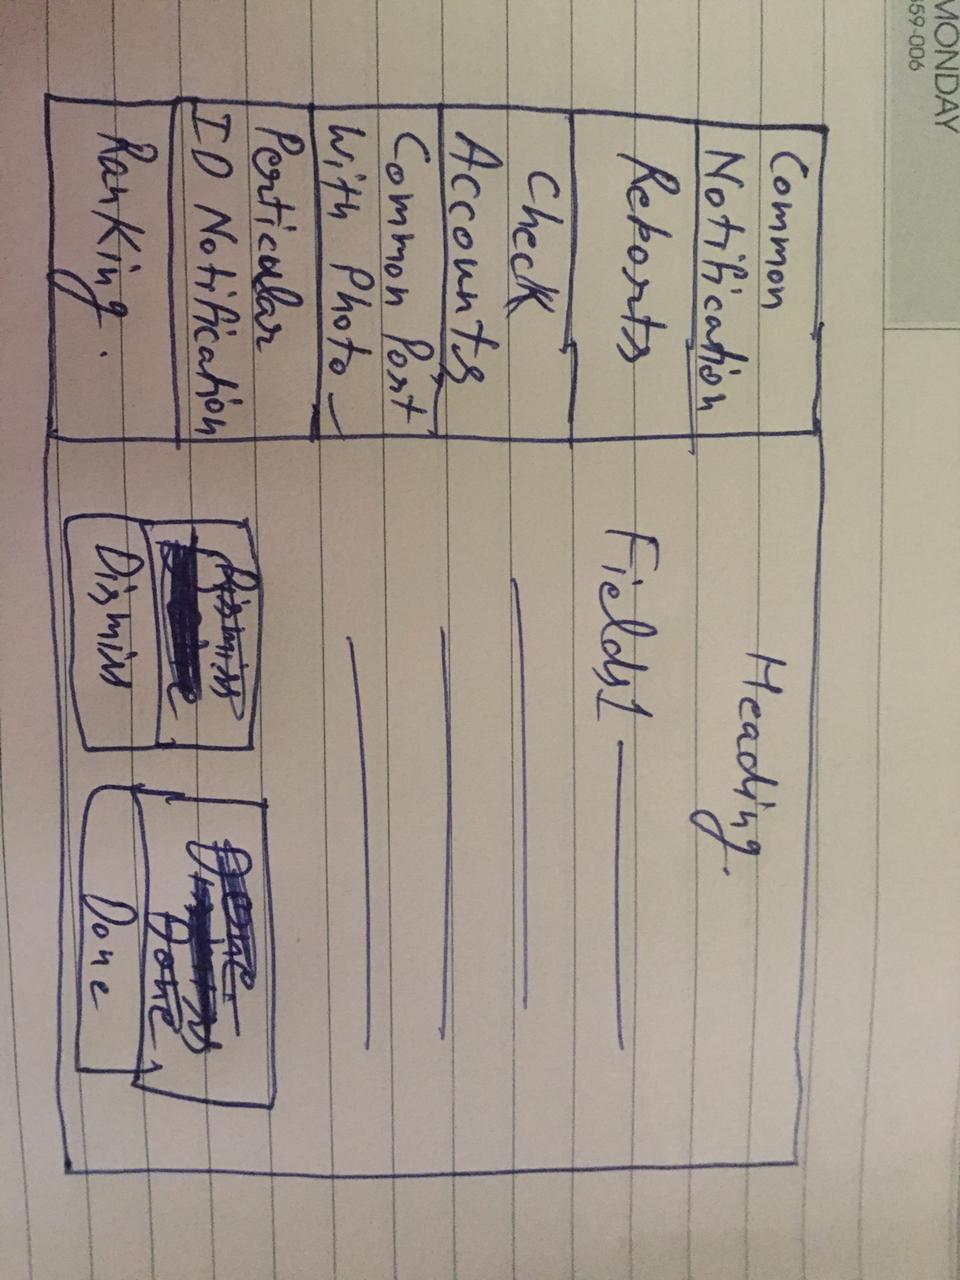 MONDAY
359-006
Common
Notification
Reports
Check
Accounts
Common Post
With Photo
Perticular
ID Notification
Ranking.
Heading.
Fields1
Dismiss
Done
Dismiss
Done
Dismiss
Done